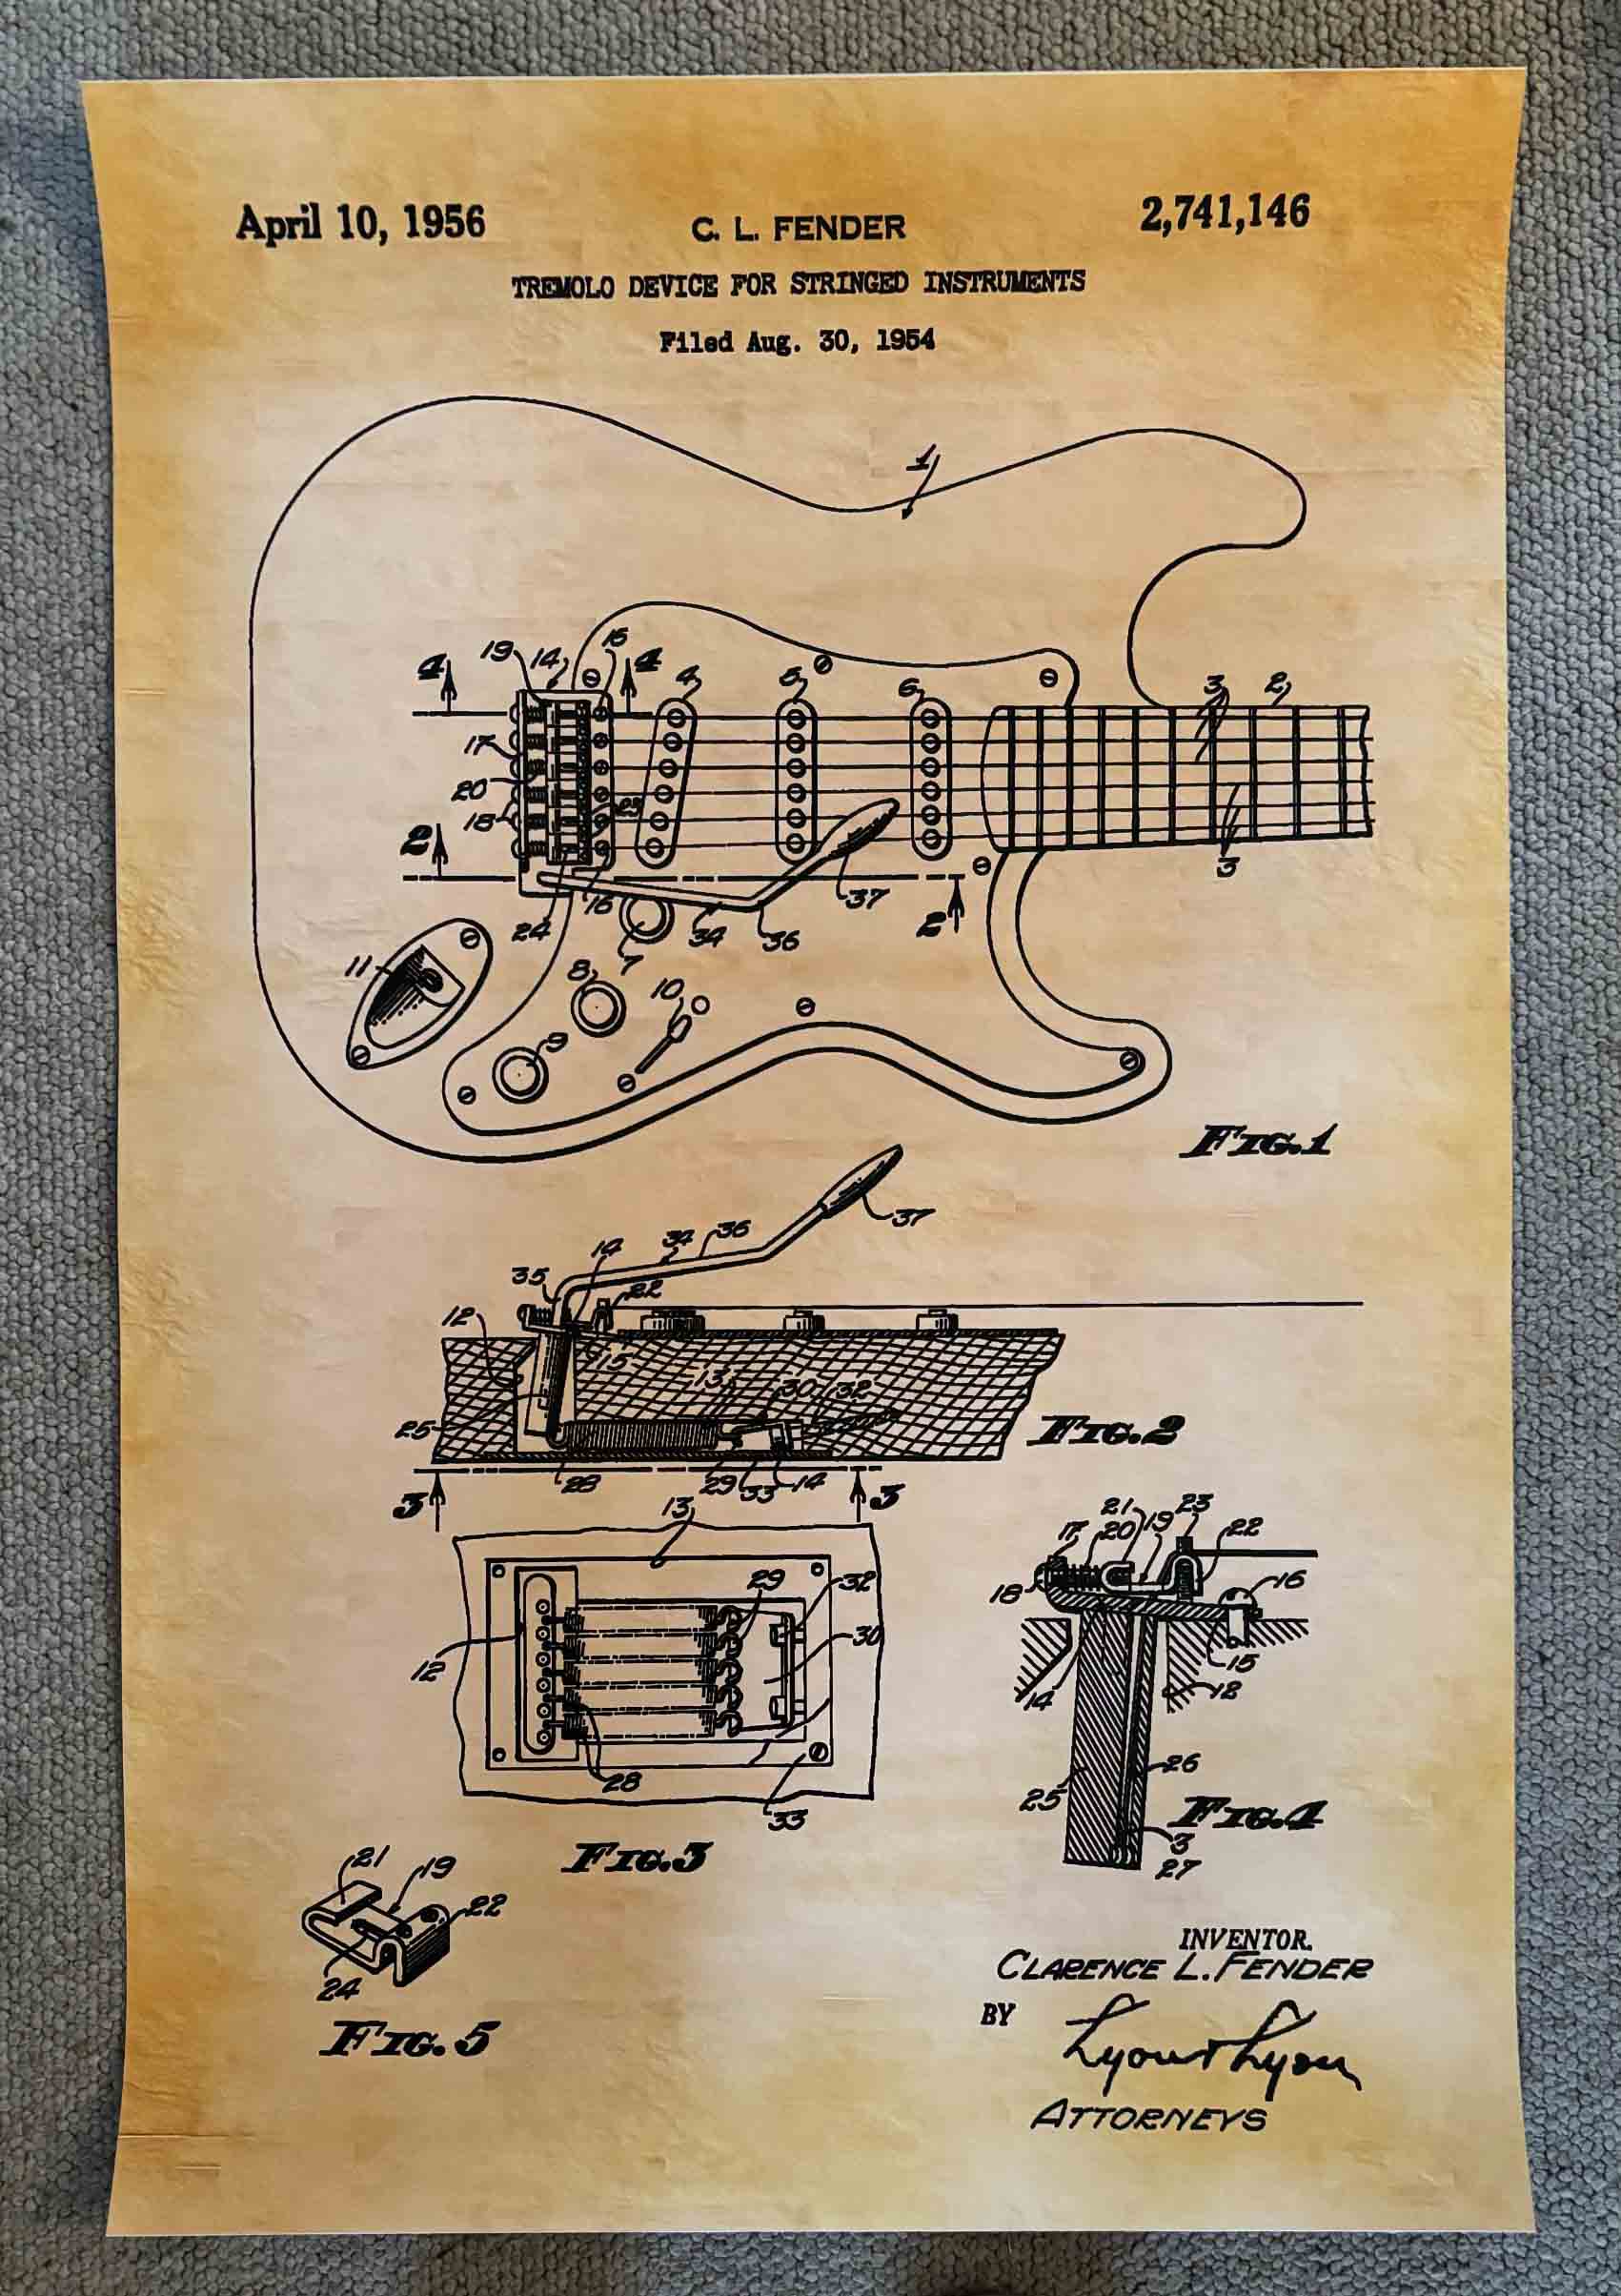 April 10, 1956
C. L. FENDER
2,741,146
TREMOLO DEVICE FOR STRINGED INSTRUMENTS
Filed Aug. 30, 1954
1
4 19 14 15 4 4 5 6 3 2
17
20
18 23
2
3
24 16 7 34 36 37 2
11 8 10
9
FIG.1
37
14 34 36
35 22
12
15 13 30 32
25
FIG.2
28 29 33 14
3 3
13
29 32
30
12
28
33
FIG.3
21 23
17 20 19 22
18 16
15
14 12
26
25
FIG.4
3
27
21 19
22
24
FIG. 5
INVENTOR.
CLARENCE L. FENDER
BY
Lyon & Lyon
ATTORNEYS